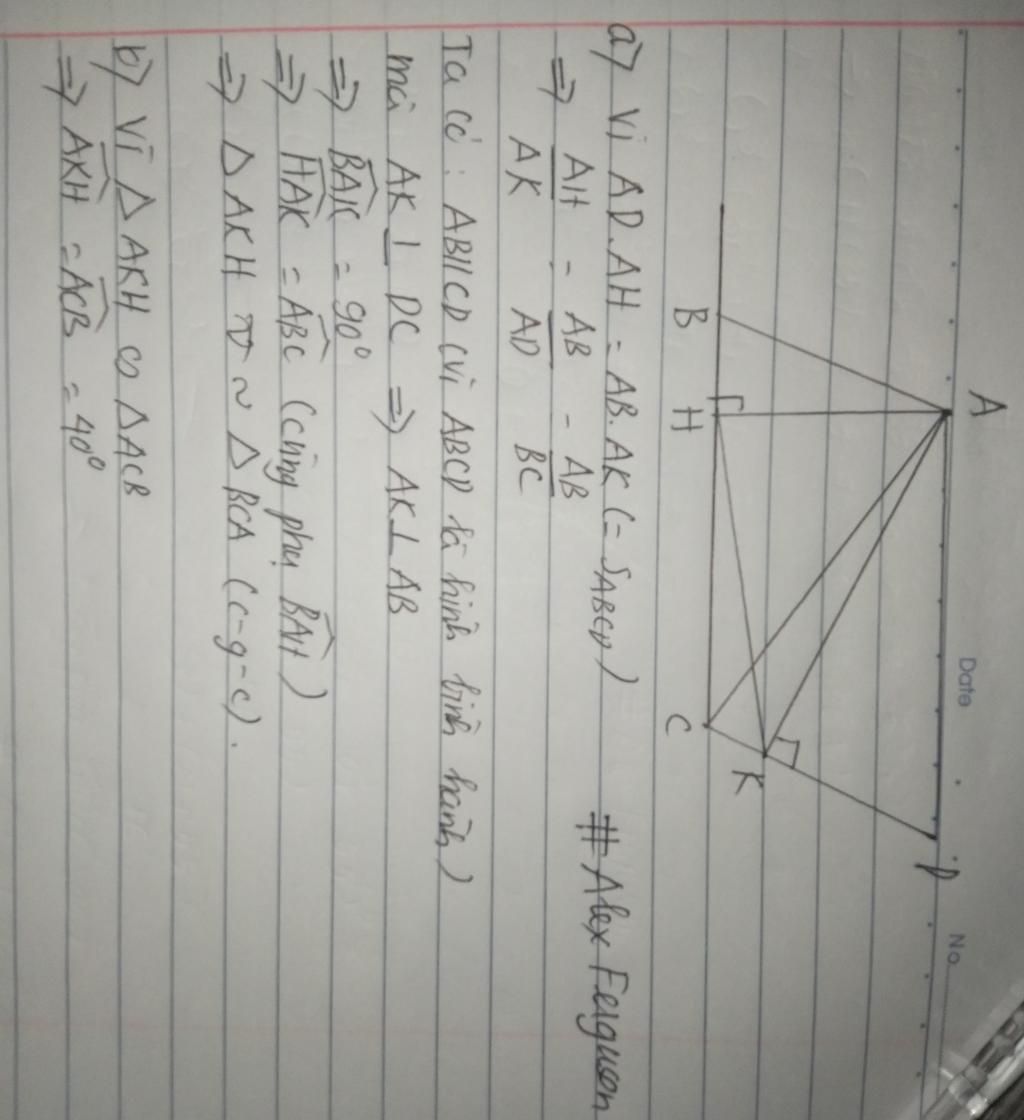 Date
No
A
D
B
H
C
K
a) Vì AD.AH = AB.AK (= SABCD)
# Alex Ferguson
⇒ AH/AK = AB/AD = AB/BC
Ta có : AB//CD (vì ABCD là hình bình hành)
mà AK ⊥ DC ⇒ AK ⊥ AB
⇒ BAK = 90°
⇒ HAK = ABC (cùng phụ BAH)
⇒ △ AKH ~ △ BCA (c-g-c).
b) Vì △ AKH ∽ △ ACB
⇒ AKH = ACB = 40°